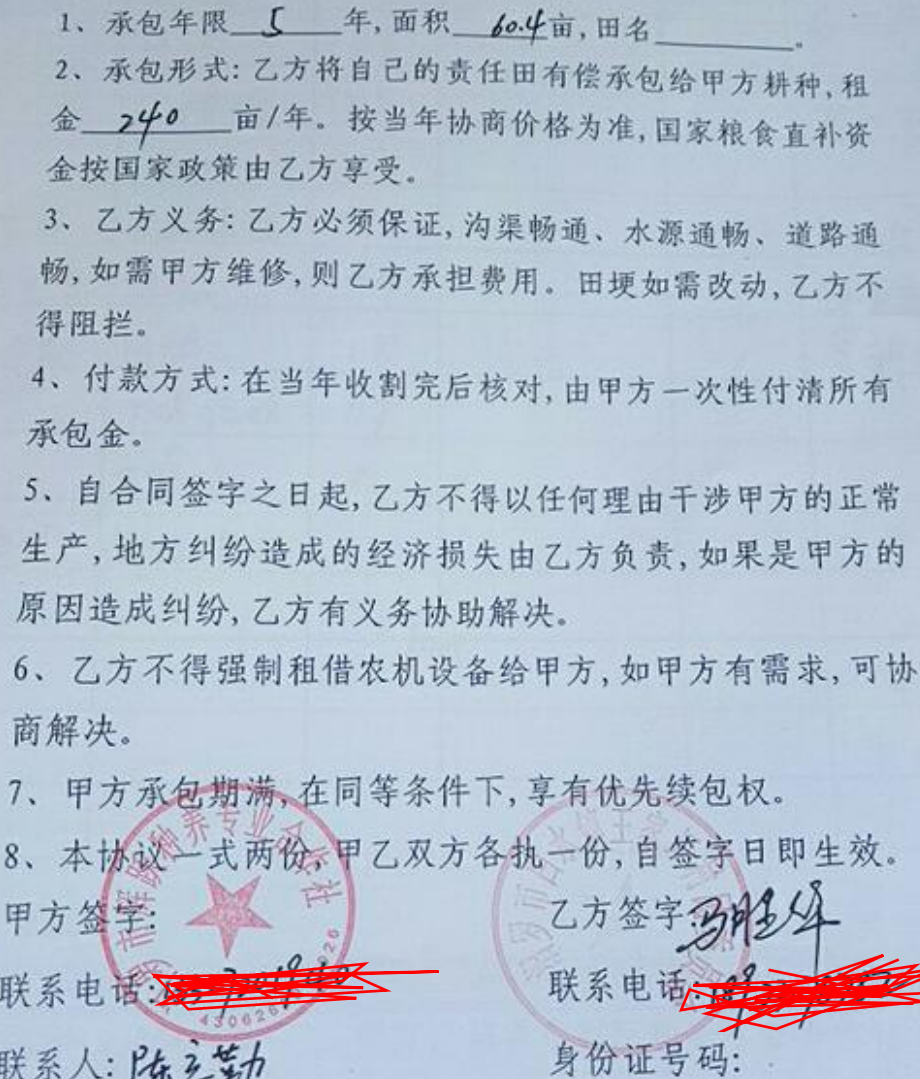 1、承包年限 5 年,面积 60.4亩,田名 。
2、承包形式:乙方将自己的责任田有偿承包给甲方耕种,租
金 240 亩/年。按当年协商价格为准,国家粮食直补资
金按国家政策由乙方享受。
3、乙方义务:乙方必须保证,沟渠畅通、水源通畅、道路通
畅,如需甲方维修,则乙方承担费用。田埂如需改动,乙方不
得阻拦。
4、付款方式:在当年收割完后核对,由甲方一次性付清所有
承包金。
5、自合同签字之日起,乙方不得以任何理由干涉甲方的正常
生产,地方纠纷造成的经济损失由乙方负责,如果是甲方的
原因造成纠纷,乙方有义务协助解决。
6、乙方不得强制租借农机设备给甲方,如甲方有需求,可协
商解决。
7、甲方承包期满,在同等条件下,享有优先续包权。
8、本协议一式两份,甲乙双方各执一份,自签字日即生效。
甲方签字:
乙方签字:马胜华
联系电话:
联系电话:
联系人:陈立勤
身份证号码:
种养专业合作社
430626